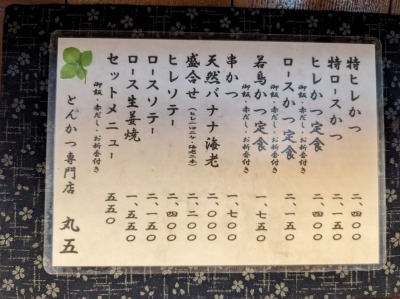 特ヒレかつ 二、四〇〇
特ロースかつ 二、一五〇
ヒレかつ定食 二、四〇〇
御飯・赤だし・お新香付き
ロースかつ定食 二、一五〇
御飯・赤だし・お新香付き
若鳥かつ定食 一、七五〇
御飯・赤だし・お新香付き
串かつ 一、七〇〇
天然バナナ海老 二、〇〇〇
盛合せ 二、二〇〇
ヒレソテー 二、四〇〇
ロースソテー 二、一五〇
ロース生姜焼 一、五五〇
セットメニュー 五五〇
御飯・赤だし・お新香付き
とんかつ専門店 丸五